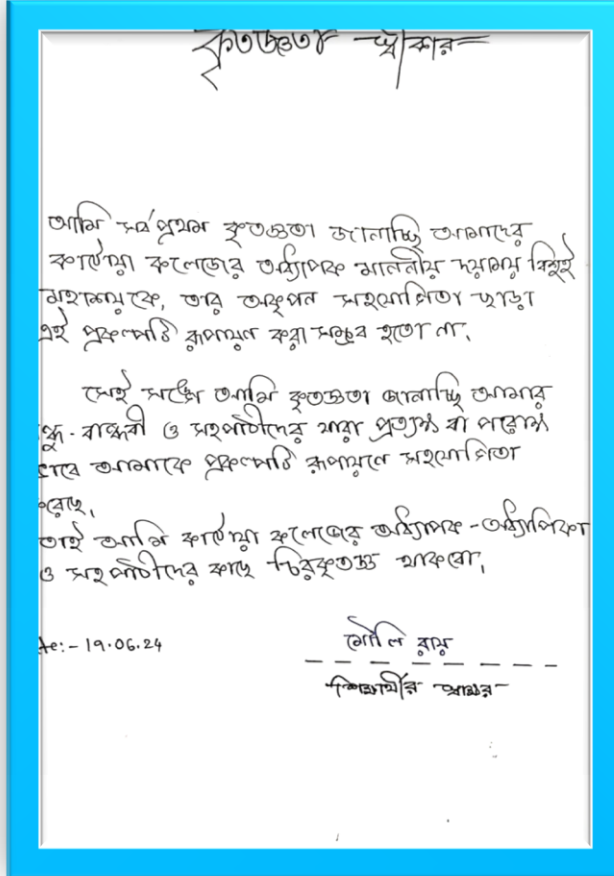 কৃতজ্ঞতা স্বীকার
আমি সর্বপ্রথম কৃতজ্ঞতা জানাচ্ছি আমাদের
কাটোয়া কলেজের অধ্যাপক মাননীয় দয়াময় বিশুই
মহাশয়কে, তার অকৃপন সহযোগিতা ছাড়া
এই প্রকল্পটি রূপায়ণ করা সম্ভব হতো না,
সেই সঙ্গে আমি কৃতজ্ঞতা জানাচ্ছি আমার
ন্ধু - বান্ধবী ও সহপাঠীদের যারা প্রত্যক্ষ বা পরোক্ষ
ভাবে আমাকে প্রকল্পটি রূপায়ণে সহযোগিতা
করেছে,
তাই আমি কাটোয়া কলেজের অধ্যাপক - অধ্যাপিকা
ও সহপাঠীদের কাছে চিরকৃতজ্ঞ থাকবো,
te:- 19.06.24
মৌলি রায়
শিক্ষার্থীর স্বাক্ষর